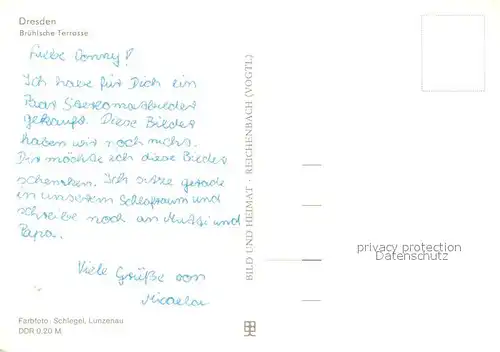 Dresden
Brühlsche Terrasse
Liebe Conny!
Ich habe für Dich ein
Paar Stereomatbilder
gekauft. Diese Bilder
haben wir noch nicht.
Dir möchte ich diese Bilder
schenken. Ich sitze gerade
in unserem Schlafraum und
schreibe noch an Mutti und
Papa.
Viele Grüße von
Micaela
BILD UND HEIMAT · REICHENBACH (VOGTL)
privacy protection
Datenschutz
Farbfoto: Schlegel, Lunzenau
DDR 0,20 M